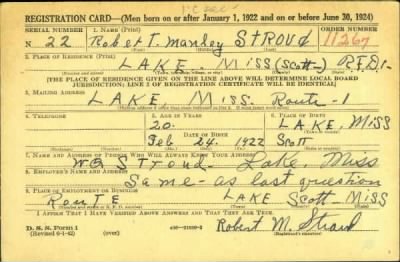 1 "C" Sec 1
REGISTRATION CARD—(Men born on or after January 1, 1922 and on or before June 30, 1924)
SERIAL NUMBER 1. NAME (Print) ORDER NUMBER
N 22 Robert Manley Stroud 11267
2. PLACE OF RESIDENCE (Print)
LAKE Miss (Scott) R.F.D.1-
[THE PLACE OF RESIDENCE GIVEN ON THE LINE ABOVE WILL DETERMINE LOCAL BOARD
JURISDICTION; LINE 2 OF REGISTRATION CERTIFICATE WILL BE IDENTICAL]
3. MAILING ADDRESS
LAKE Miss. Route-1
4. TELEPHONE 5. AGE IN YEARS 6. PLACE OF BIRTH
20. LAKE, Miss
DATE OF BIRTH
Feb 24. 1922 Scott
7. NAME AND ADDRESS OF PERSON WHO WILL ALWAYS KNOW YOUR ADDRESS
Stroud- Lake Miss
8. EMPLOYER'S NAME AND ADDRESS
Same-as last question
9. PLACE OF EMPLOYMENT OR BUSINESS
Route LAKE Scott- Miss
I AFFIRM THAT I HAVE VERIFIED ABOVE ANSWERS AND THAT THEY ARE TRUE.
D. S. S. Form 1
(Revised 6-1-42) (over)
Robert M. Stroud
(Registrant's signature)